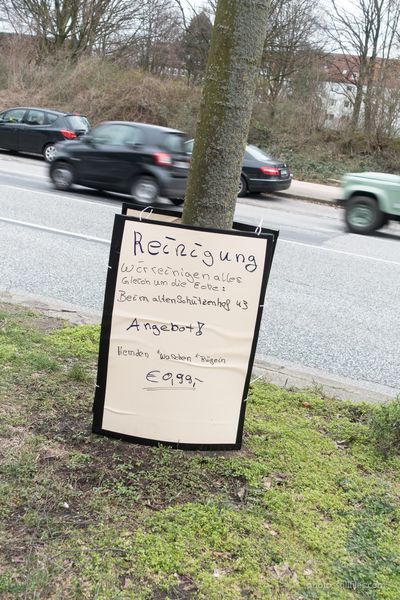 Reinigung
Wir reinigen alles
Gleich um die Ecke:
Beim alten Schützenhof 43
Angebot!
Hemden "Waschen "Bügeln
€0,99,-